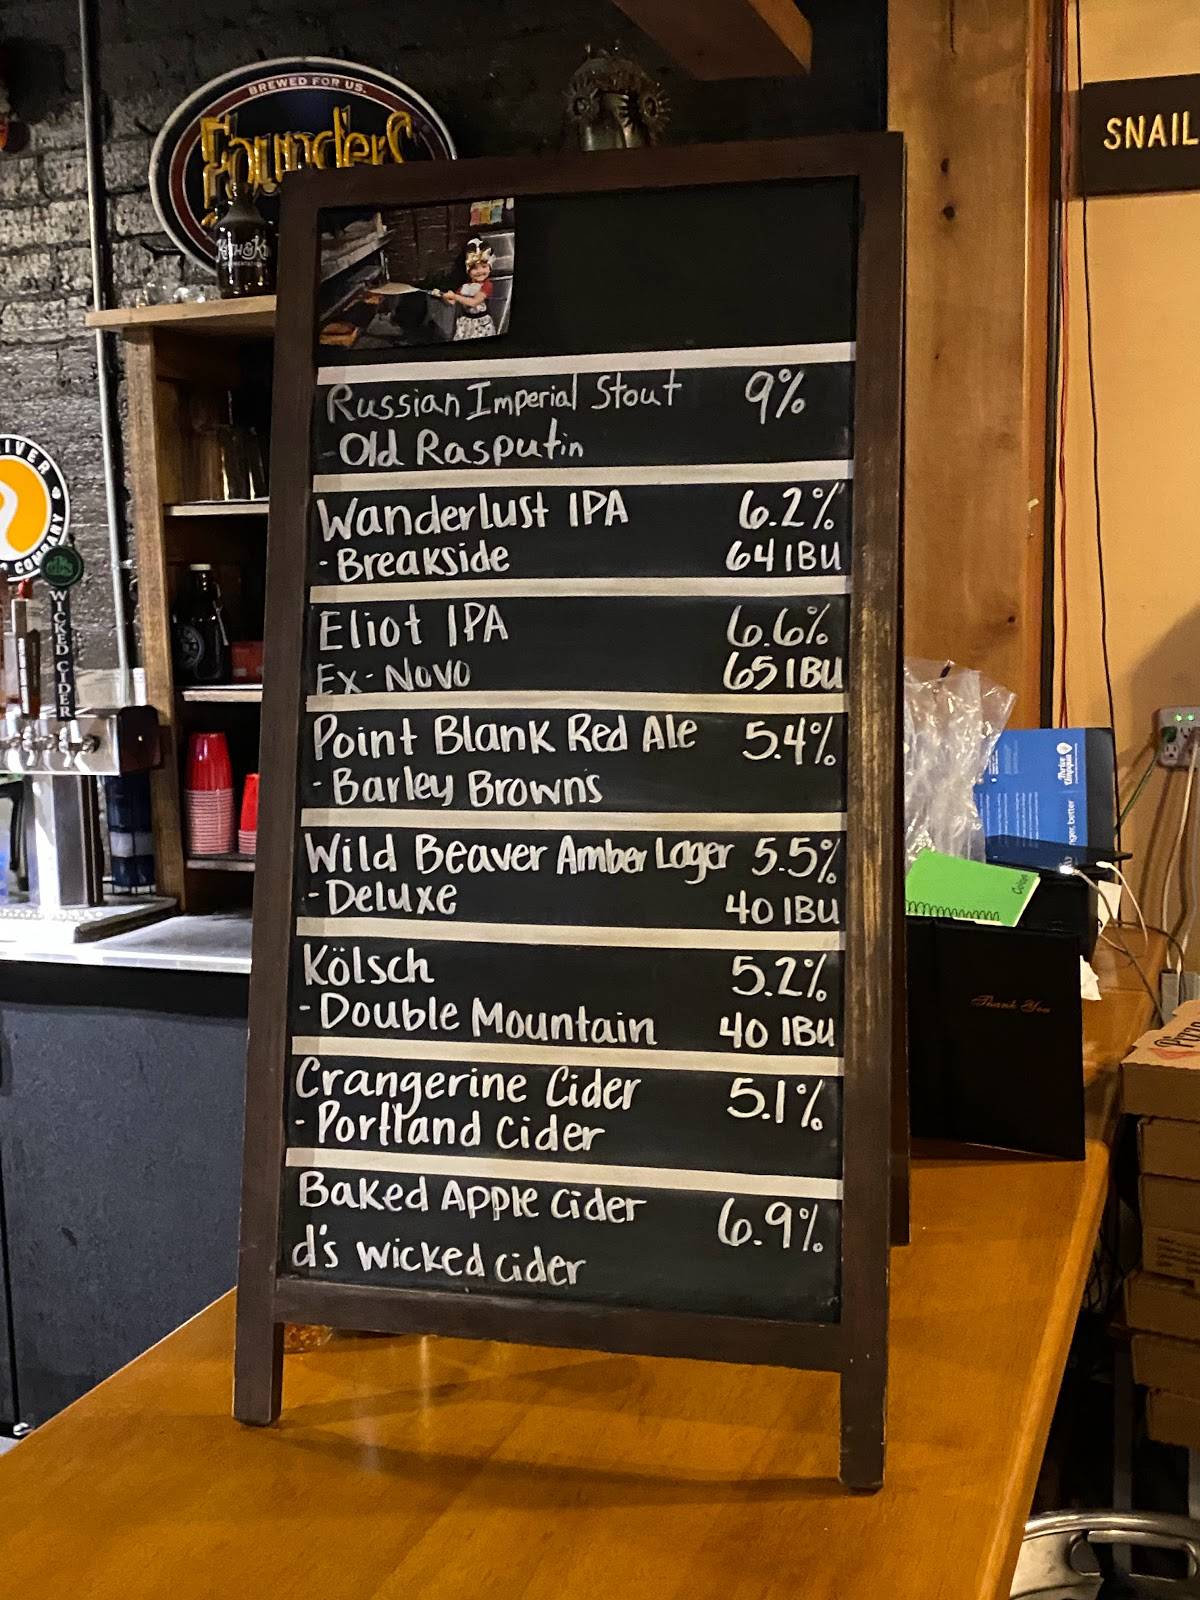 BREWED FOR US.
Founders
SNAIL
RIVER
COMPANY
WICKED CIDER
Russian Imperial Stout 9%
- Old Rasputin
Wanderlust IPA 6.2%
- Breakside 64 IBU
Eliot IPA 6.6%
Ex-Novo 65 IBU
Point Blank Red Ale 5.4%
- Barley Browns
Wild Beaver Amber Lager 5.5%
- Deluxe 40 IBU
Kölsch 5.2%
- Double Mountain 40 IBU
Crangerine Cider 5.1%
- Portland Cider
Baked Apple Cider 6.9%
d's wicked cider
Thank You